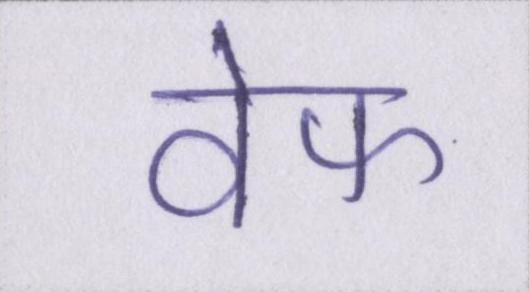 वेफ